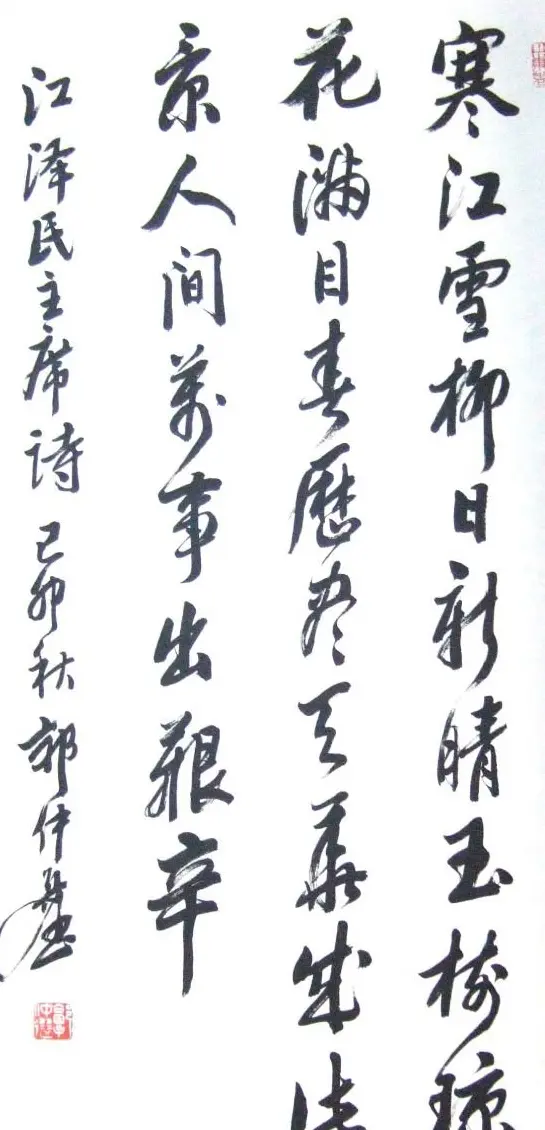 寒江雪柳日新晴玉树琼
花满目春歷尽天華成此
景人间萬事出艱辛
江泽民主席诗 己卯秋 郭仲選